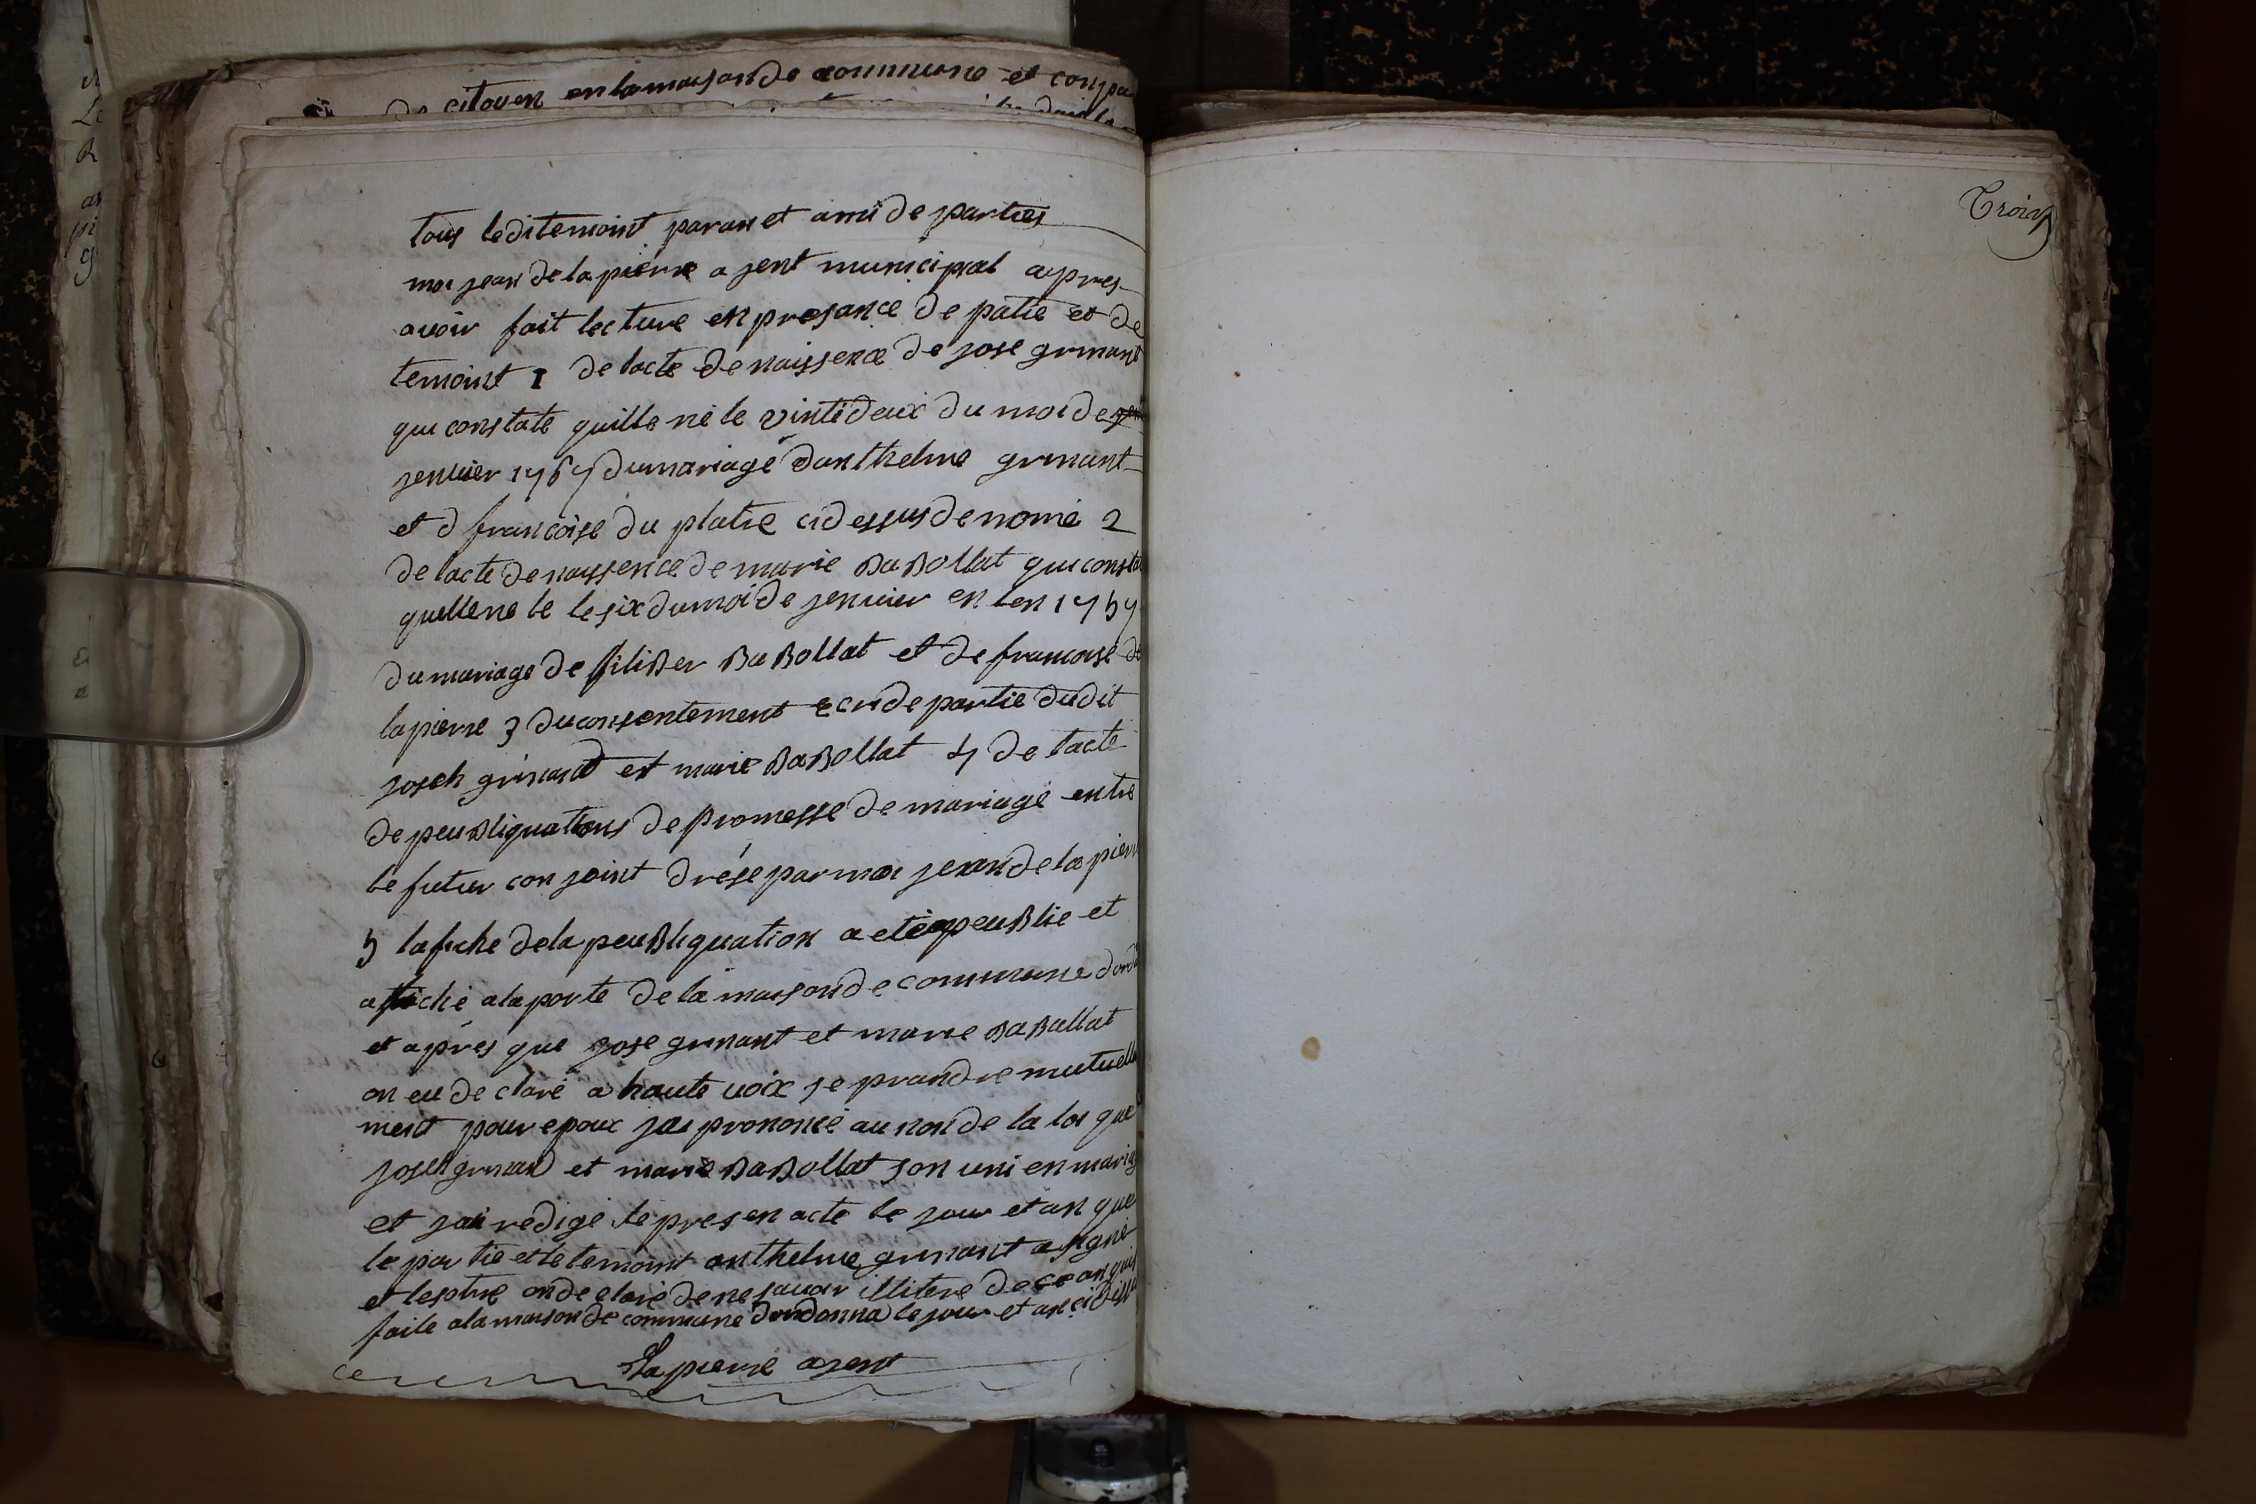 de citoyen en la maison de commune et conpa
tous leditemoint paran et ami de parties
moi jean de la pierre ajent municipal apres
avoir fait lecture en presance de patie et de
temoint 1 de lacte de naissence de jose grinant
qui constate quille né le vintédeux du moi de
jenvier 1767 du mariage danthelme grinant
et d francoise du platre cidessus denomé 2
de lacte de naissence de marie BaBollat qui consta
quellene le le six du moi de jenvier en len 1757
du mariage de filiBer BaBollat et de francoise de
lapierre 3 du consentement ecri de partie dudit
joseh grinand et marie BaBollat 4 de lacte
de peuBliquations de promesse de mariage entre
le futur conjoint drésé par moi jean de la pierr
5 lafiche de la peuBliquation a eté peuBlie et
affiché a la porte de la maison de commune dordo
et aprés que jose grinant et marie BaBallat
on eu declaré a haute voix se prandre mutuelle
ment pour epoux jai prononcé au non de la loi que
joseh grinan et marie BaBollat son uni en mariag
et jai redigé le presen acte le jour et an que
le partie et le temoint anthelme grinant a signé
et lesptre on declaré de ne savoir illitere de ce anquis
faite a la maison de commune dordonna le jour et an cidessu
Lapierre ajent
Trois